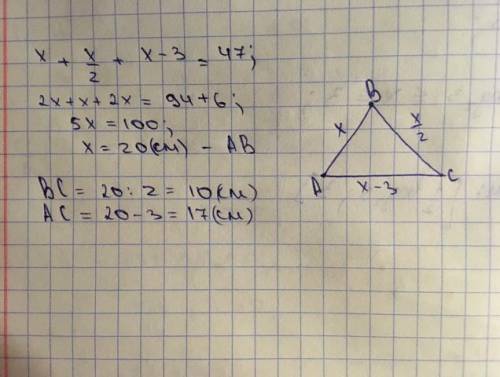 x + x/2 + x - 3 = 47;
2x + x + 2x = 94 + 6;
5x = 100;
x = 20 (см) - AB
BC = 20 : 2 = 10 (см)
AC = 20 - 3 = 17 (см)
B
x
x/2
A
x - 3
C